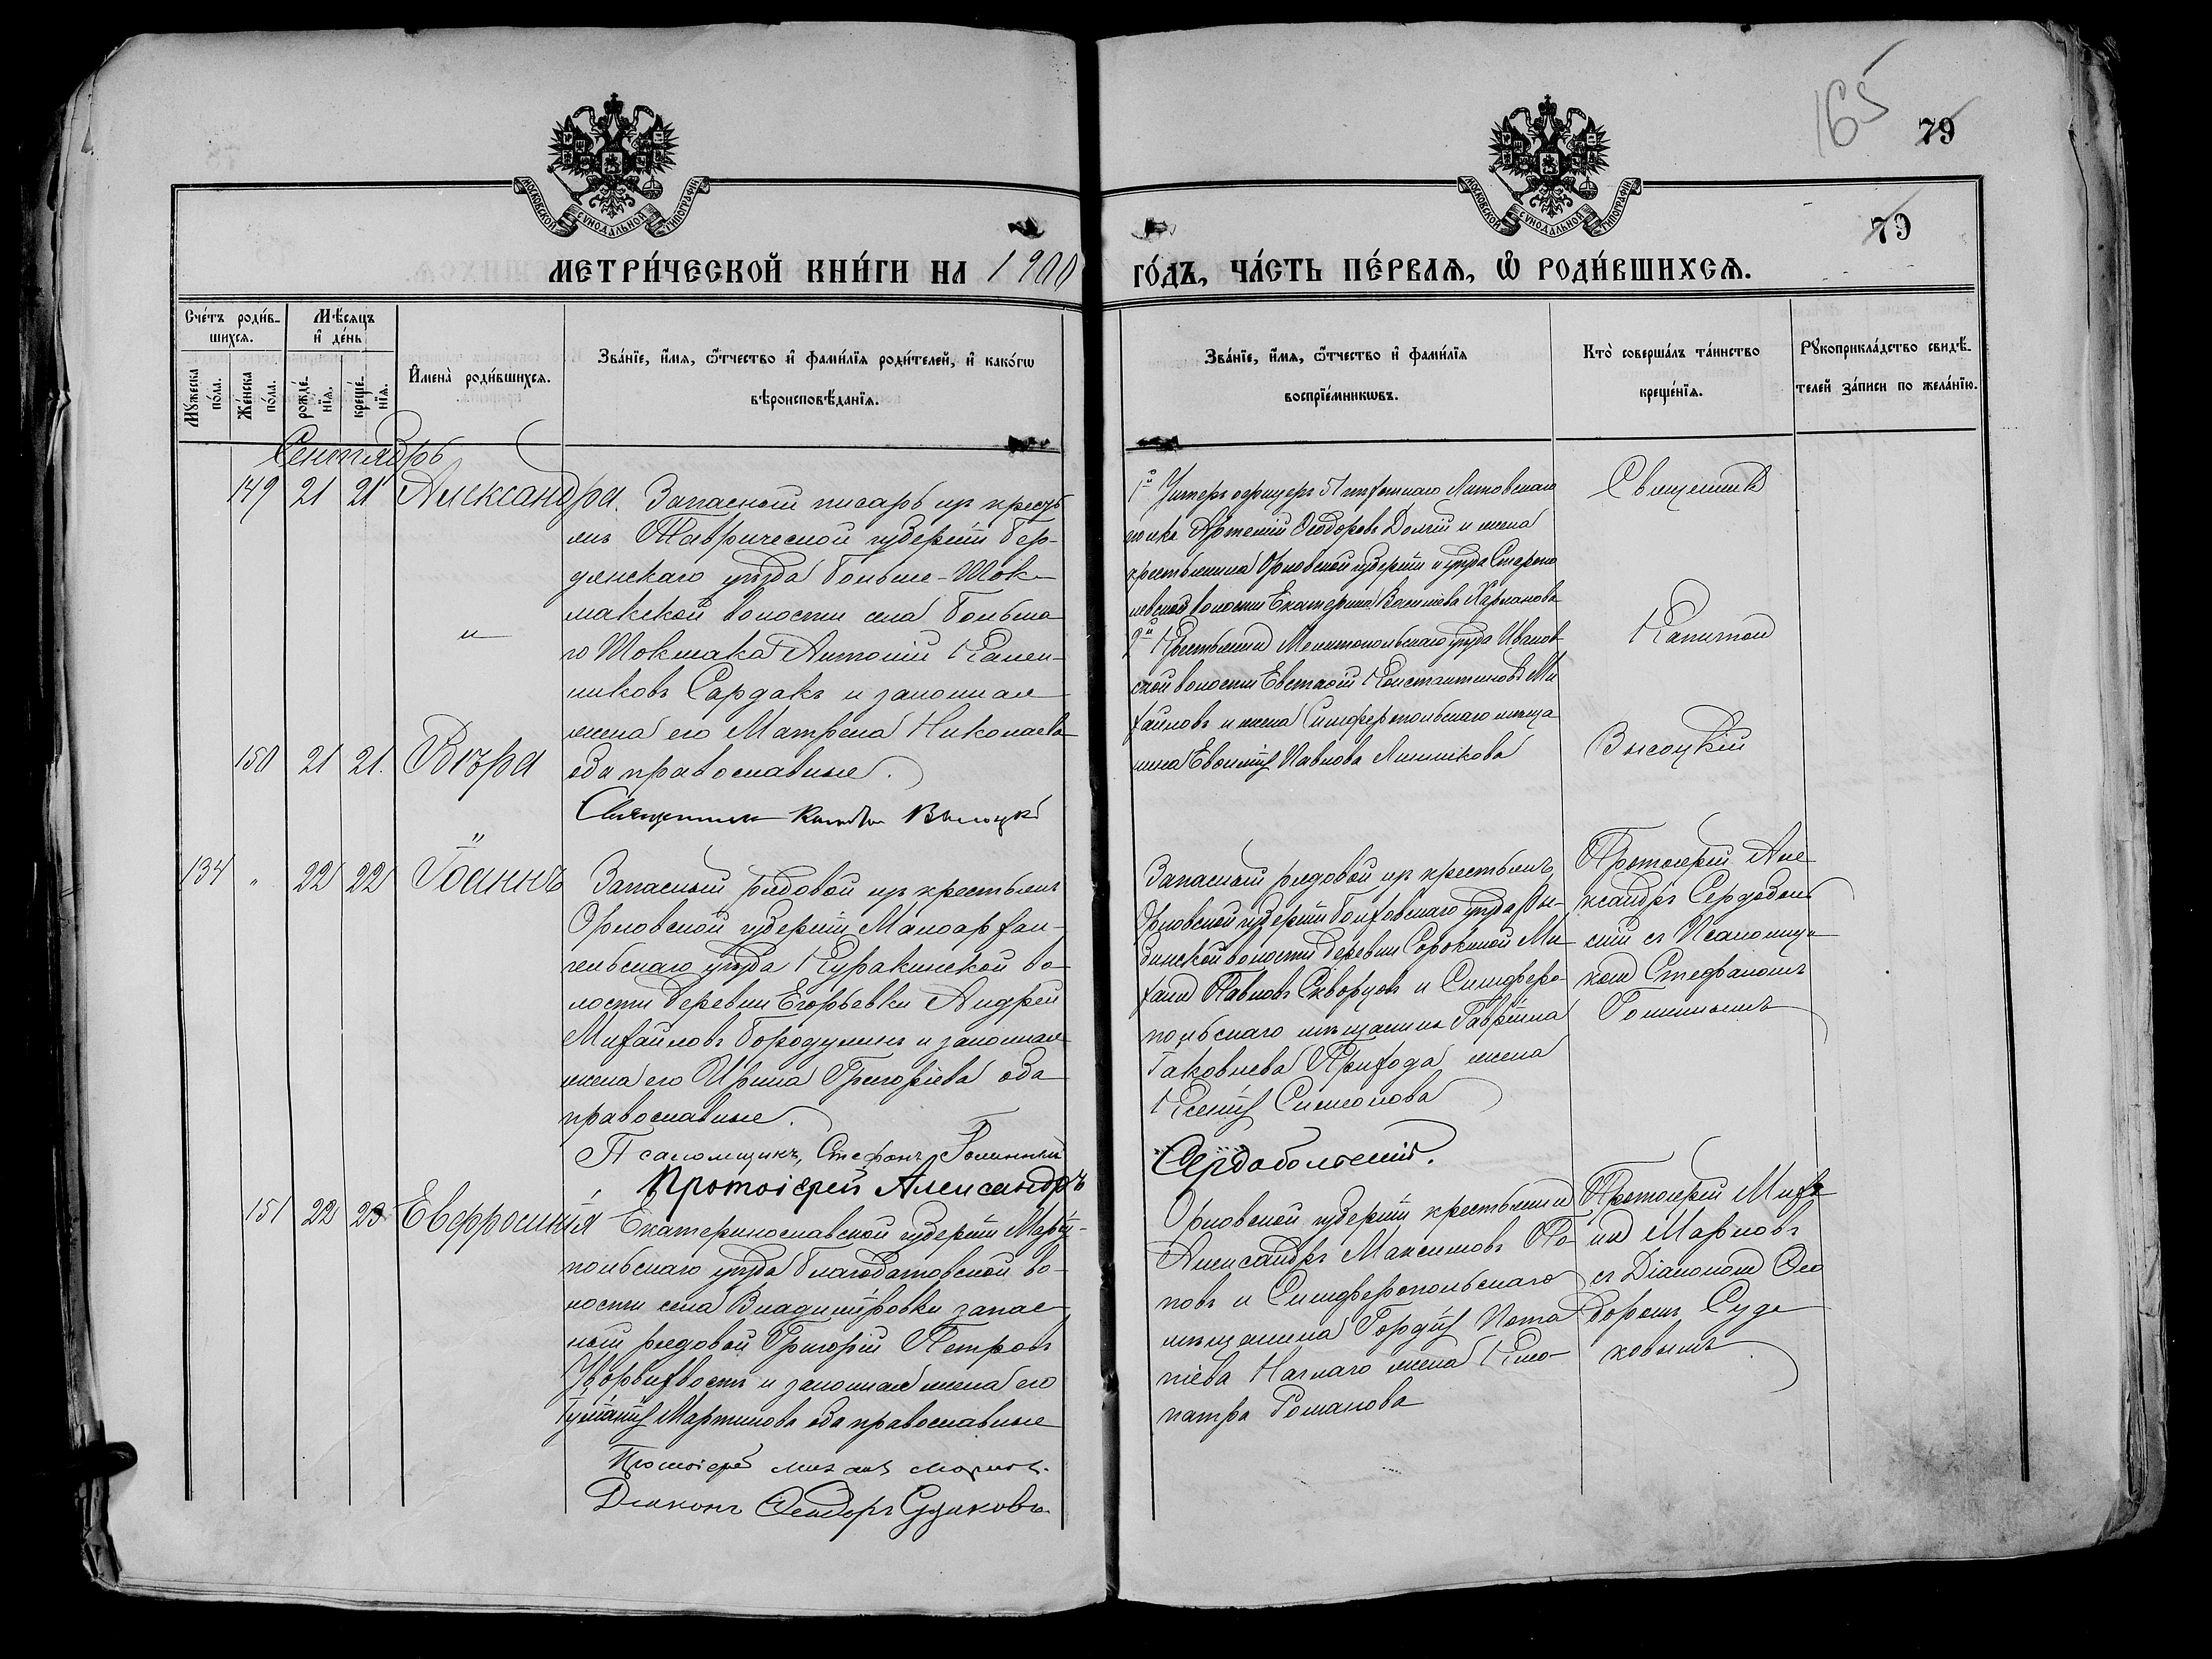 165
79
МОСКОВСКОЙ СѴНОДАЛЬНОЙ ТИПОГРАФІИ
МОСКОВСКОЙ СѴНОДАЛЬНОЙ ТИПОГРАФІИ
79
МЕТРИ́ЧЕСКОЙ КНИ́ГИ НА 1900
ГО́ДЪ, ЧА́СТЬ ПЕ́РВАѦ, Ѽ РОДИ́ВШИХСѦ.
Сче́тъ роди́в-
шихсѧ.
Мѣ́сѧцъ
и҆ де́нь
Мꙋ́жеска
по́ла.
Же́нска
по́ла.
рожде́-
нїѧ.
креще́-
нїѧ.
И҆мена̀ роди́вшихсѧ.
Зва́нїе, и҆́мѧ, ѻ҆́тчество и҆ фами́лїѧ роди́телей, и҆ како́гѡ
вѣроисповѣ́данїѧ.
Зва́нїе, и҆́мѧ, ѻ҆́тчество и҆ фами́лїѧ
воспрїе́мникѡвъ.
Кто̀ соверша́лъ та́инство
креще́нїѧ.
Рꙋкоприкла́дство свидѣ́-
телей за́писи по жела́нїю.
Сентябрь
149 21 21 Александра. Запасный писарь изъ крестья
янъ Таврической губерніи Бер-
дянскаго уѣзда Больше-Ток-
макской волости села Больша
го Токмака Антоній
Сардакъ и законная
жена его Матрена Николаева
150 21 21. Вѣра оба православные.
Священник Высоцкі
1й Унтеръ офицеръ Литовскаго
полка Артемій Ѳеодоровъ Долгій и жена
крестьянина Орловской губерніи и уѣзда
волости Екатерина Васильева
2й Крестьянинъ Мелитопольскаго уѣзда Иванов
ской волости Евстаѳій Константиновъ Ми
хайловъ и жена Симферопольскаго мѣща
нина Павлова
Священникъ
Капитонъ
Высоцкій
134 " 22 22 Іоаннъ Запасный рядовой изъ крестьянъ
Орловской губерніи Малоархан-
гельскаго уѣзда Куракинской во-
лости деревни Егорьевки Андрей
Михайловъ Бородулинъ и законная
жена его Ирина Григоріева оба
православные.
Псаломщикъ, Стефанъ
Протоіерей Александръ
Запасный рядовой изъ крестьянъ
Орловской губерніи Болховскаго уѣзда
волости деревни Сорокиной Ми
хаилъ Павловъ Скворцовъ и Симферо-
польскаго мѣщанина Гавріила
Іаковлева Прихода жена
Ксенія Симеонова
Сердобольскій.
Протоіерей Але
ксандръ Сердоболь
скій съ Псаломщи
комъ Стефаномъ
151 22 23 Евфросинія Екатеринославской губерніи Маріу-
польскаго уѣзда Благодатовской во-
лости села Владиміровки запас
ный рядовой Григорій Петровъ
и законная жена его
Іуліанія Мартинова оба православные
Протоіерей Михаилъ Марковъ.
Діаконъ Ѳеодоръ Судаковъ.
Орловской губерніи крестьянинъ
Александръ Максимовъ По-
повъ и Симферопольскаго
мѣщанина Гордія Пота
піева Наглаго жена Клео-
патра Романова
Протоіерей Миха
илъ Марковъ
съ Діакономъ Ѳео
доромъ Суда
ковымъ.